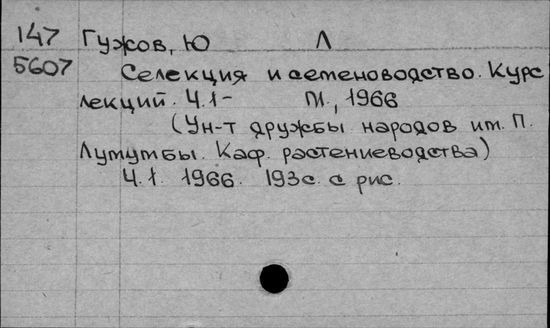 147 Гужов, Ю Л
5607 Селекция и семеноводство. Курс
лекций. Ч.1- М., 1966
(Ун-т дружбы народов им. П.
Лумумбы. Каф. растениеводства)
Ч.1. 1966. 193с. с рис.